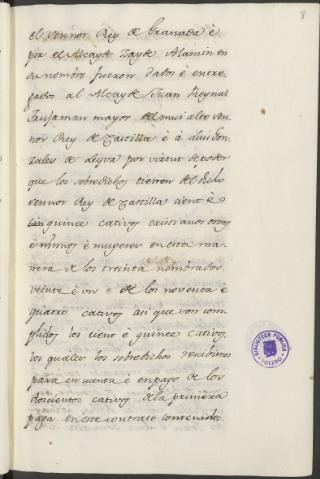 8
el sennor Rey de Granada é
por el Alcayde Zayde Alamin en
su nombre fueron dados é entre-
gados al Alcayde Juan Reynal
mayor del mui alto sen-
nor Rey de Castilla é á Luis Gon-
zales de Leyva por virtud de poder
que los sobredichos tienen del dicho
sennor Rey de Castilla cient é
quince cativos cristianos omes
é ninnos é mugeres en esta ma-
nera de los treinta nombrados
veinte é un é de los noventa é
quatro cativos asi que son com-
plidos los cient é quince cativos,
los quales los sobredichos recibimos
para en cuenta é en pago de los
doscientos cativos de la primera
paga en este contrato contenidos.
BIBLIOTECA PUBLICA